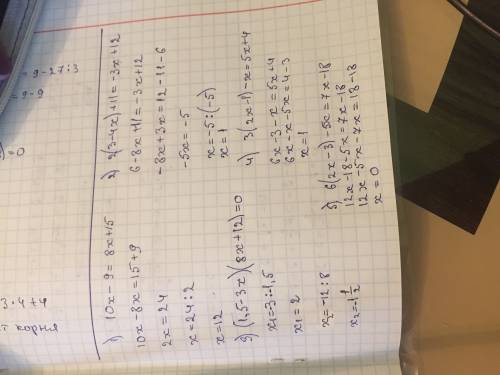 = 9-27:3
= 9-9
)=0
3·4+4
т корня
1) 10x-9=8x+15
10x-8x=15+9
2x=24
x=24:2
x=12
2) 2(3-4x)+11=-3x+12
6-8x+11=-3x+12
-8x+3x=12-11-6
-5x=-5
x=-5:(-5)
x=1
3) (1,5-3x)(8x+12)=0
x₁=3:-1,5
x₁=2
x₂=-12:8
x₂=-1 1/2
4) 3(2x-1)-x=5x+4
6x-3-x=5x+4
6x-x-5x=4-3
x=1
5) 6(2x-3)-5x=7x-18
12x-18-5x=7x-18
12x-5x-7x=18-18
x=0